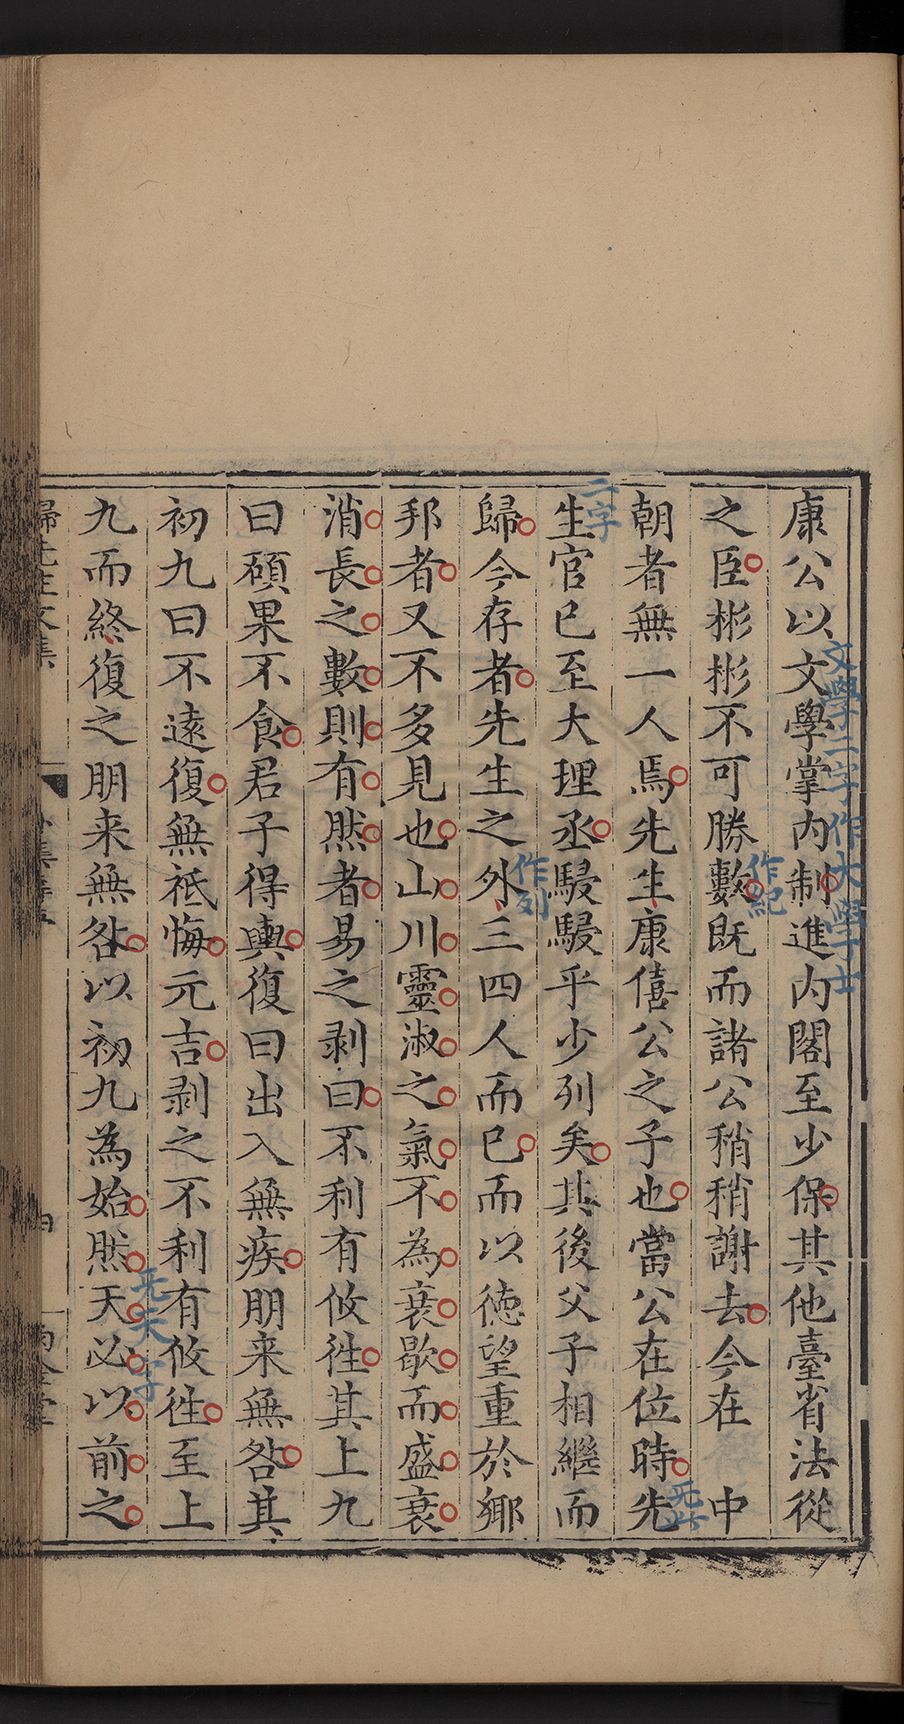 康公以文學掌內制進內閣至少保其他臺省法從
文學二字作大學士
之臣彬彬不可勝數既而諸公稍稍謝去今在　中
作紀
朝者無一人焉先生康僖公之子也當公在位時先
二字
生官已至大理丞駸駸乎少列矣其後父子相繼而
作列
歸今存者先生之外三四人而已而以德望重於鄉
邦者又不多見也山川靈淑之氣不為衰歇而盛衰
消長之數則有然者易之剥曰不利有攸徃其上九
曰碩果不食君子得輿復曰出入無疾朋来無咎其
初九曰不遠復無祗悔元吉剥之不利有攸徃至上
九而終復之朋来無咎以初九為始然天必以前之
歸先生文集